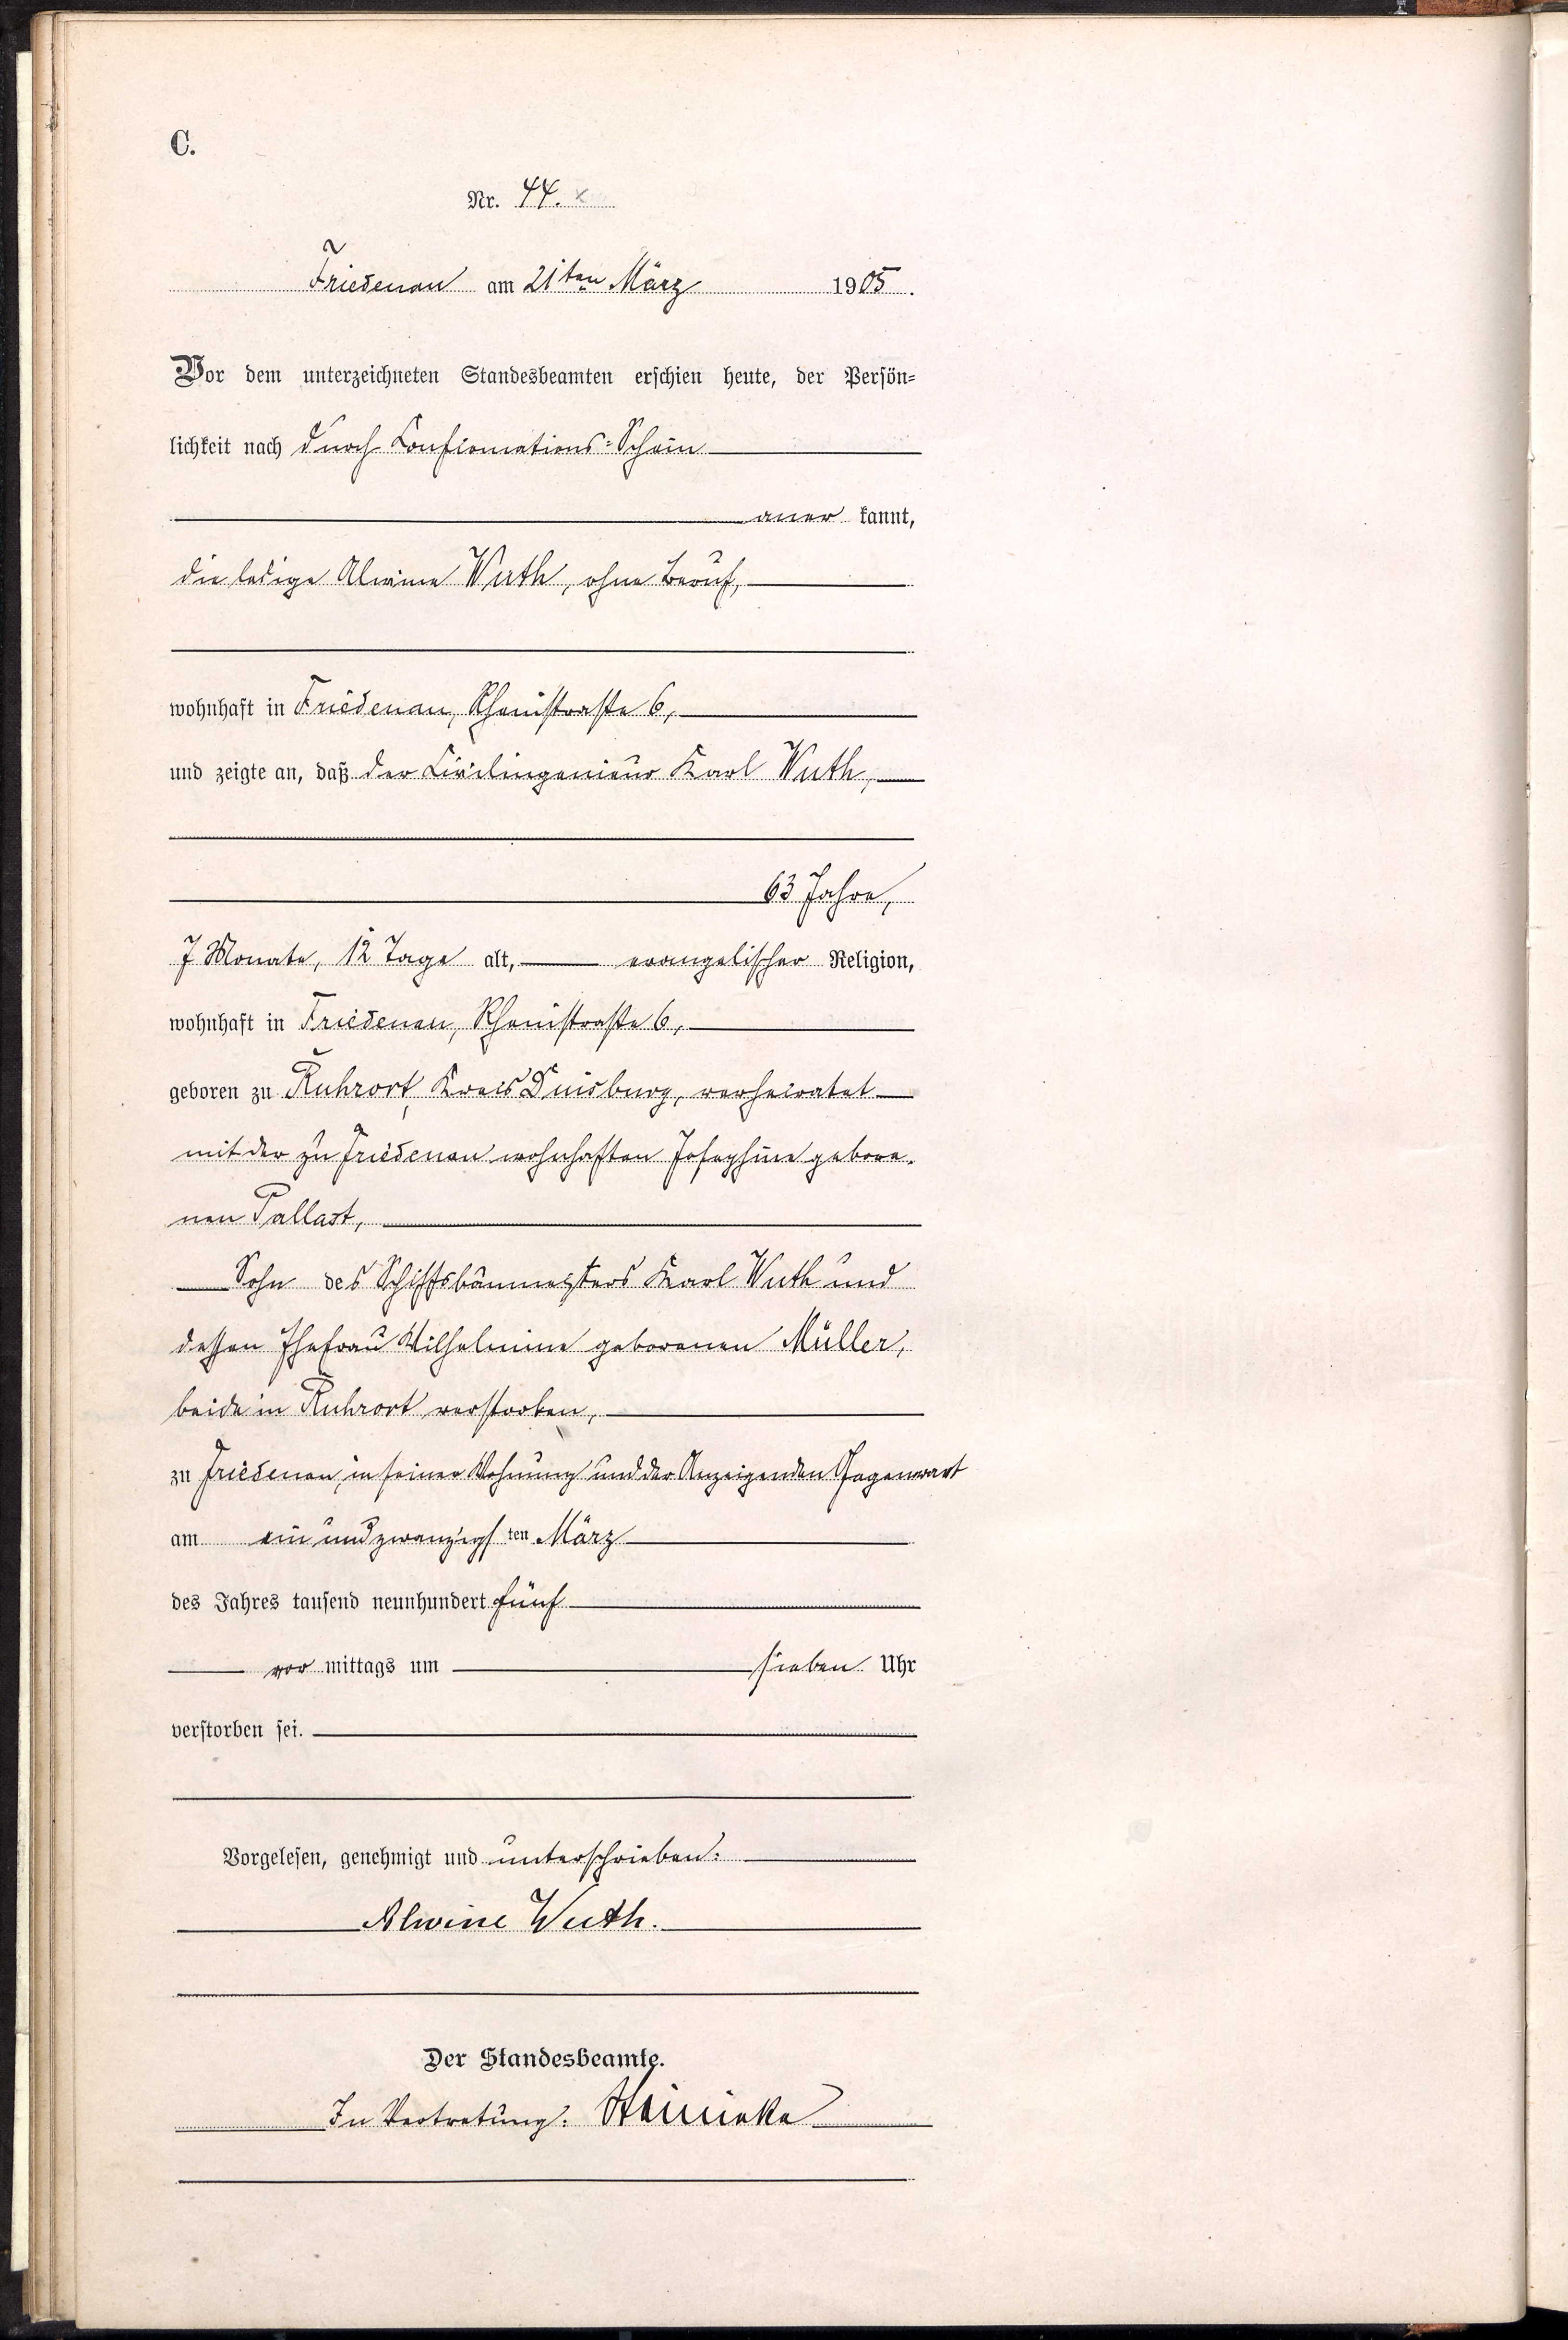 C.
Nr. 44.
Friedenau am 21ten März 1905.
Vor dem unterzeichneten Standesbeamten erschien heute, der Persön-
lichkeit nach durch Confirmations-Schein
aner kannt,
die ledige Alwine Wuth, ohne Beruf,
wohnhaft in Friedenau, Rheinstraße 6,
und zeigte an, daß der Civilingenieur Karl Wuth,
63 Jahre,
7 Monate, 12 Tage alt, evangelischer Religion,
wohnhaft in Friedenau, Rheinstraße 6,
geboren zu Ruhrort, Kreis Duisburg, verheiratet
mit der zu Friedenau wohnhaften Josephine gebore-
nen Pallast,
Sohn des Schiffsbaumeisters Karl Wuth und
dessen Ehefrau Wilhelmine geborenen Müller,
beide in Ruhrort verstorben,
zu Friedenau, in seiner Wohnung und der Anzeigenden Gegenwart
am ein und zwanzigsten März
des Jahres tausend neunhundert fünf
vor mittags um sieben Uhr
verstorben sei.
Vorgelesen, genehmigt und unterschrieben.
Alwine Wuth.
Der Standesbeamte.
In Vertretung: